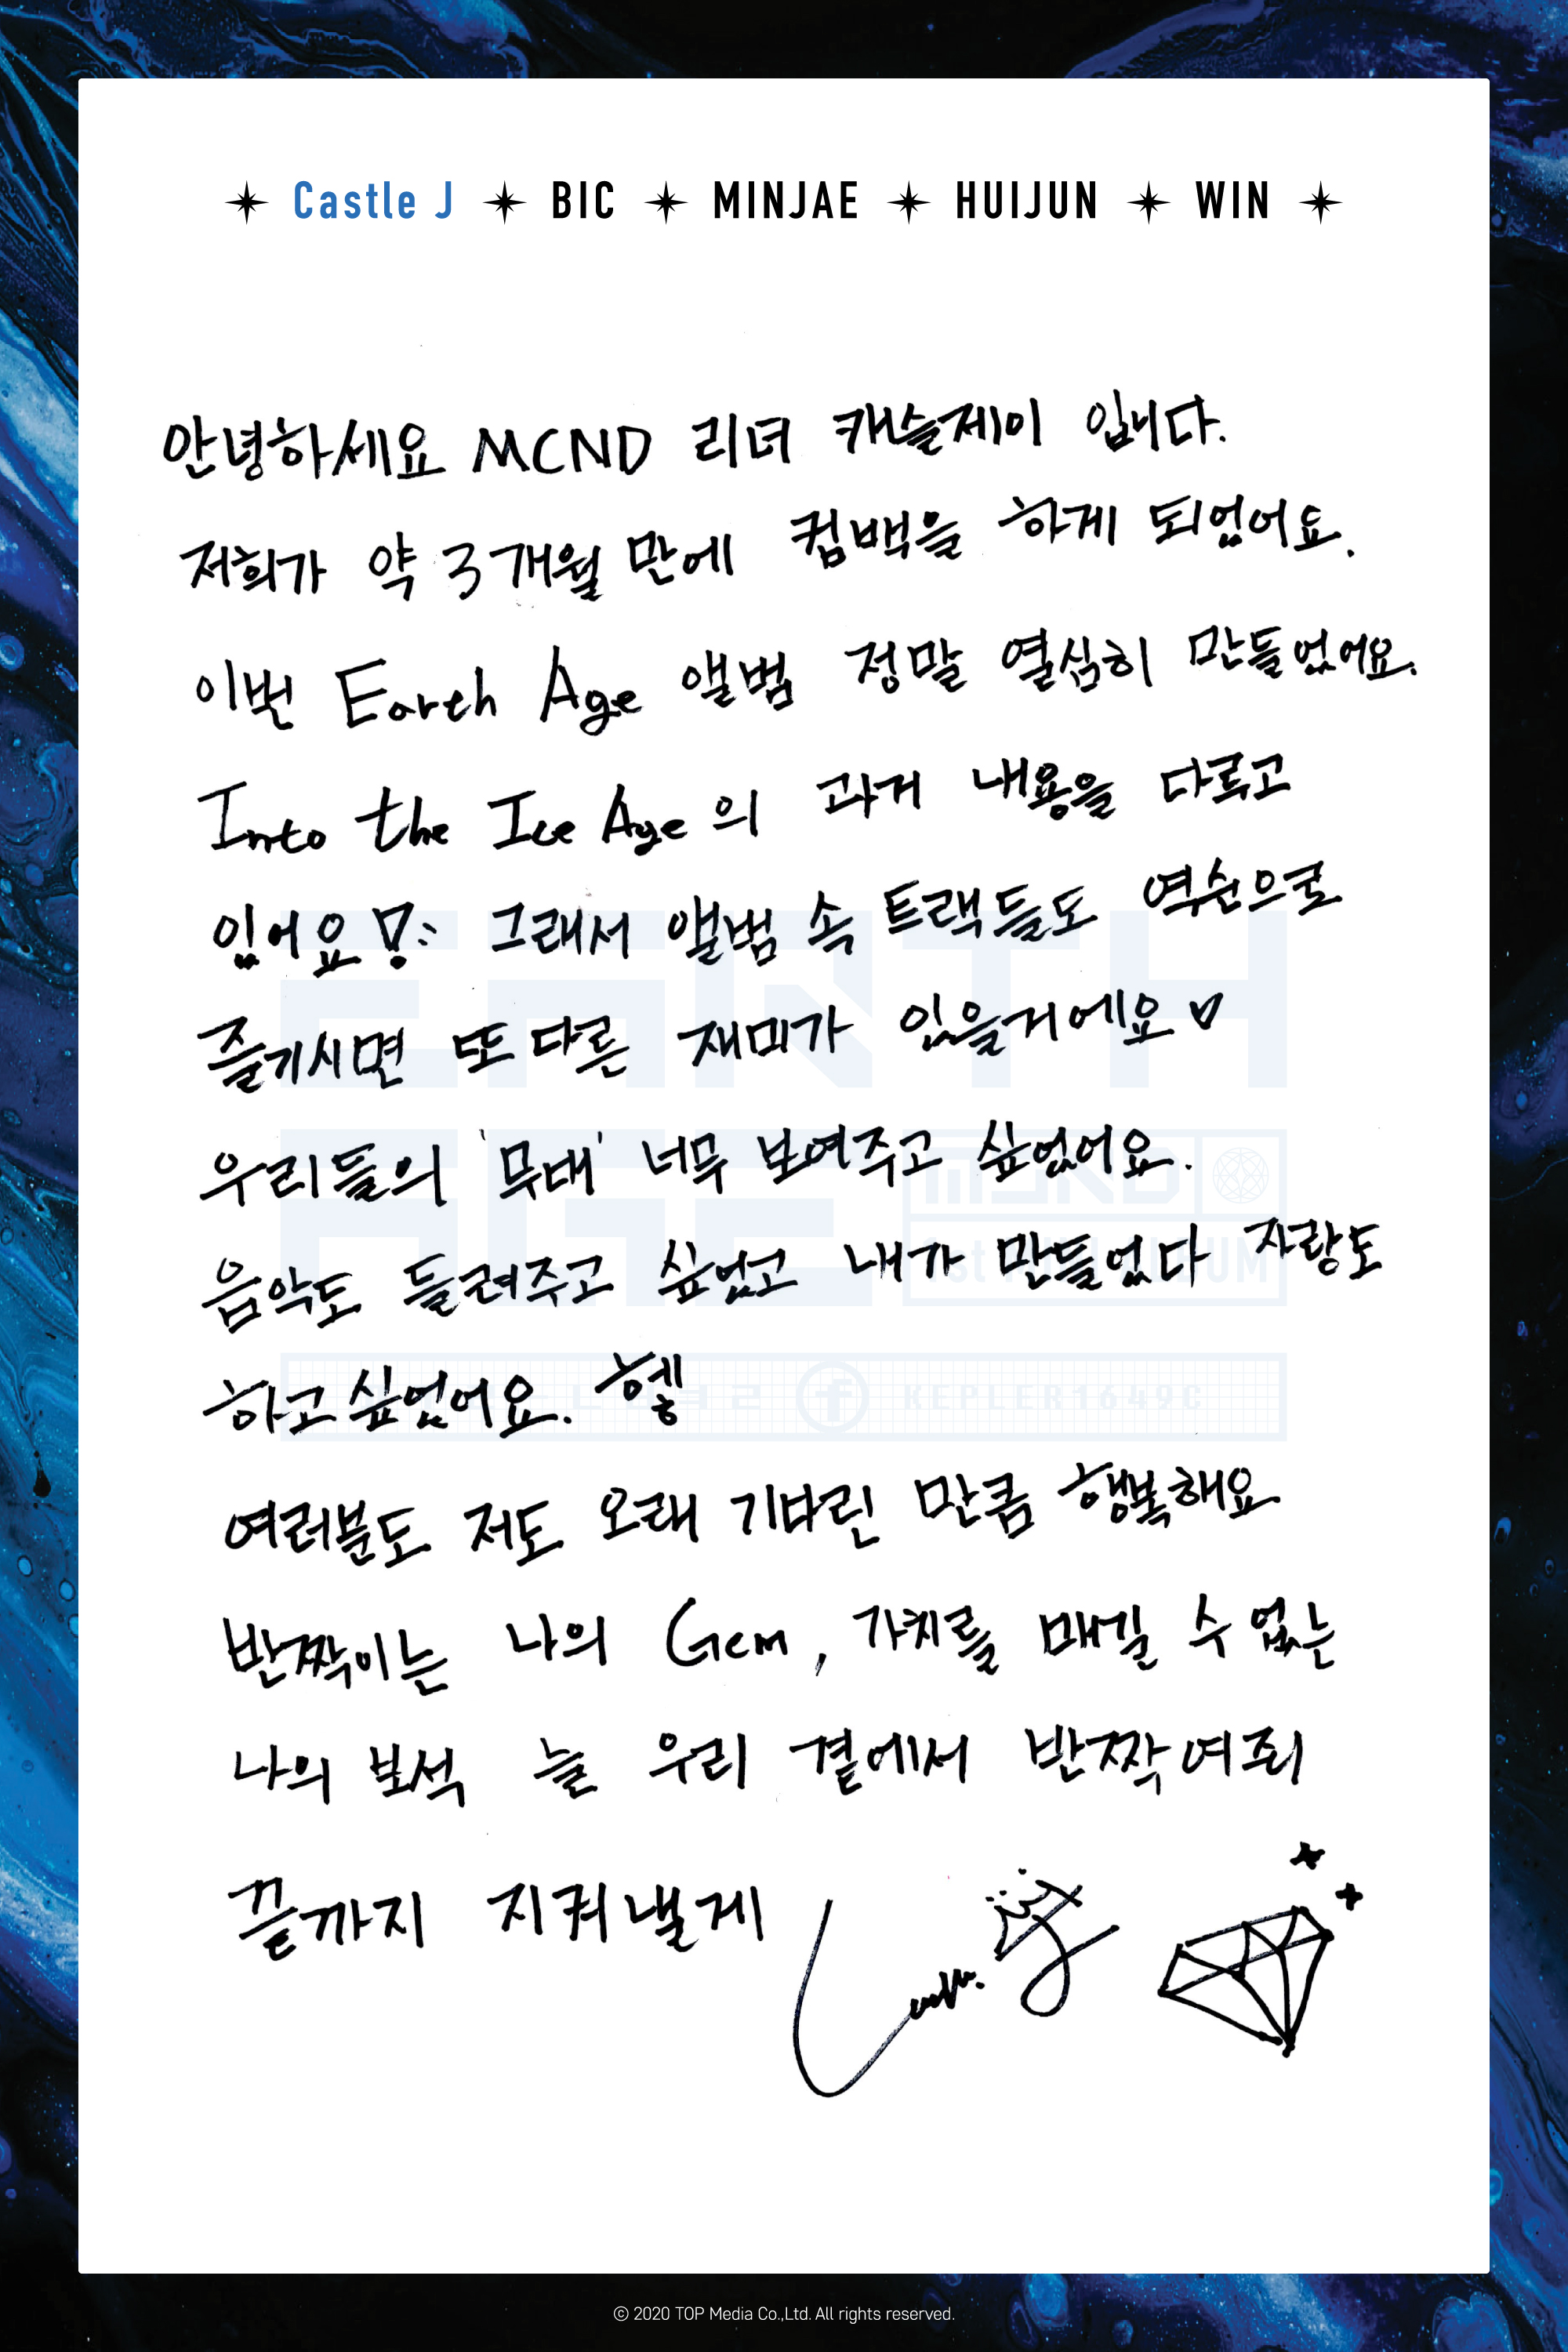 Castle J BIC MINJAE HUIJUN WIN
안녕하세요 MCND 리더 캐슬제이 입니다.
저희가 약 3개월 만에 컴백을 하게 되었어요.
이번 Earth Age 앨범 정말 열심히 만들었어요.
Into the Ice Age의 과거 내용을 다루고
있어요! 그래서 앨범 속 트랙들도 역순으로
즐기시면 또 다른 재미가 있을거에요♡
우리들의 '무대' 너무 보여주고 싶었어요.
음악도 들려주고 싶었고 내가 만들었다 자랑도
하고 싶었어요. 헿
여러분도 저도 오래 기다린 만큼 행복해요
반짝이는 나의 Gem, 가치를 매길 수 없는
나의 보석 늘 우리 곁에서 반짝여줘
끝까지 지켜낼게
EARTH
AGE
MCND
1st MINI ALBUM
KEPLER1649C
© 2020 TOP Media Co.,Ltd. All rights reserved.